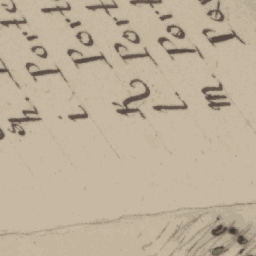 h. Port
i. Port
K Port
l. Port
m. Po